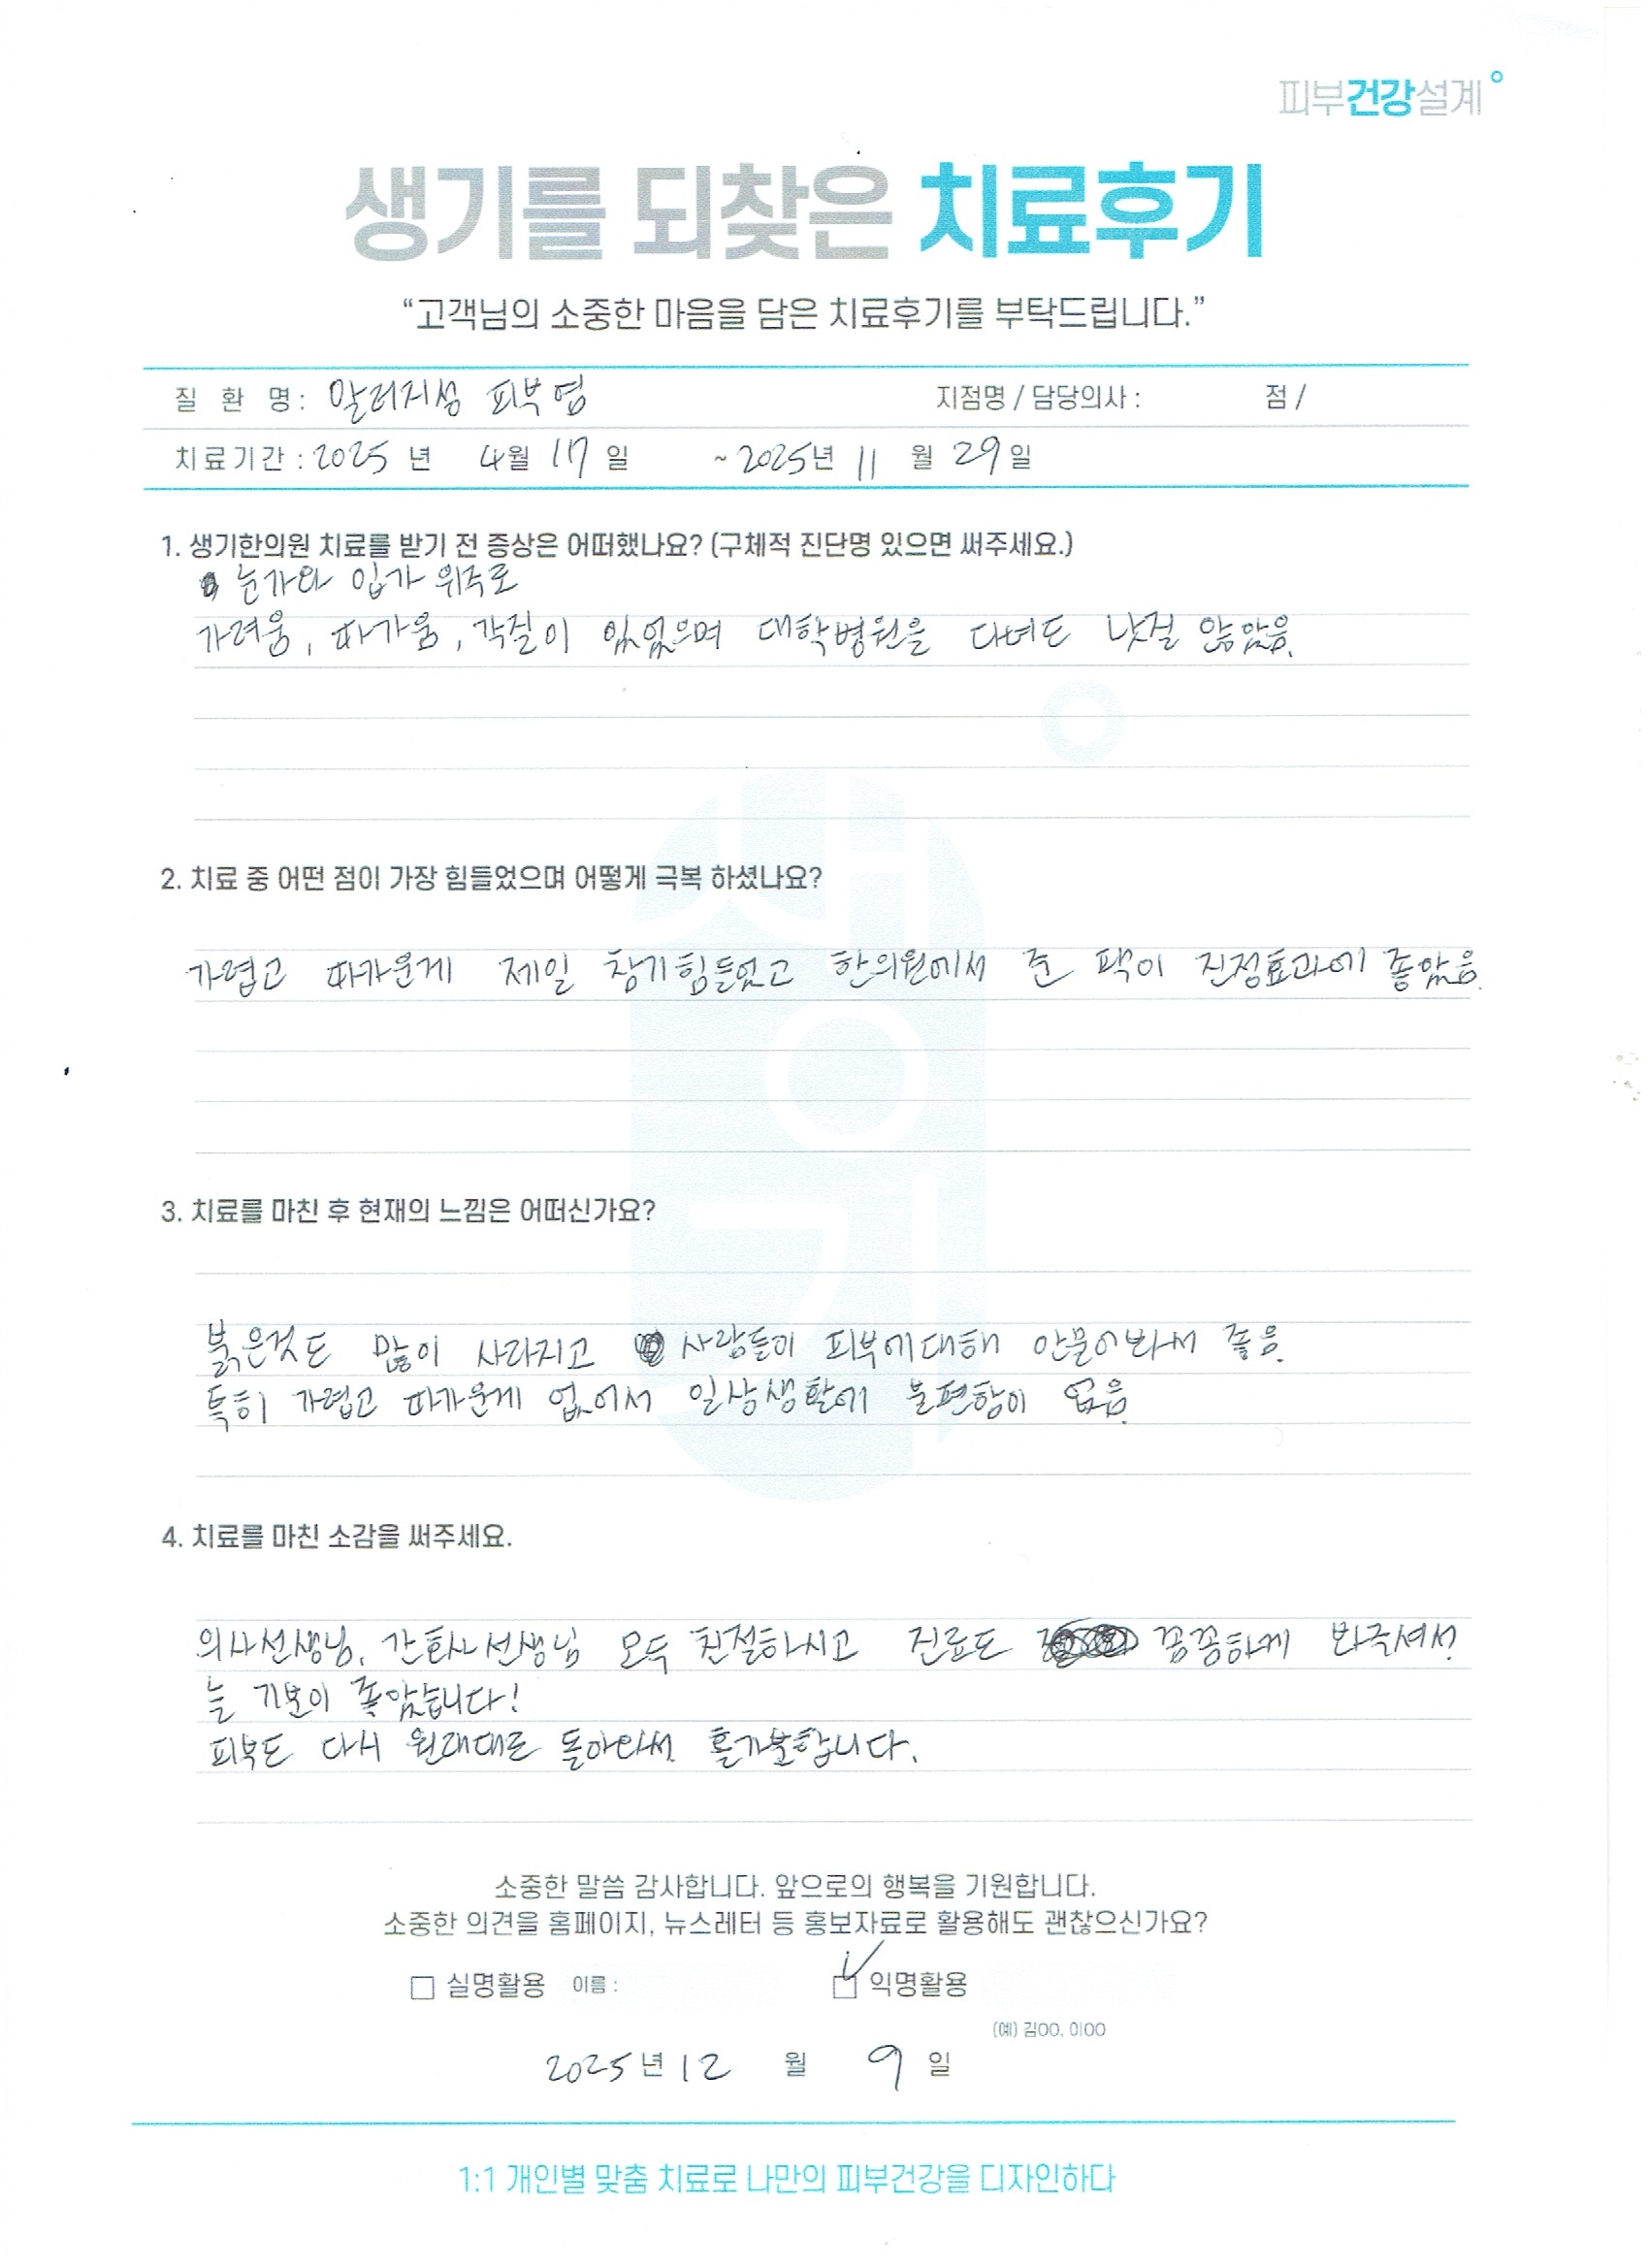 피부건강설계
생기를 되찾은 치료후기
“고객님의 소중한 마음을 담은 치료후기를 부탁드립니다.”
질 환 명 : 알러지성 피부염 지점명 / 담당의사 : 점 /
치료기간 : 2025 년 4월 17 일 ~ 2025년 11 월 29일
1. 생기한의원 치료를 받기 전 증상은 어떠했나요? (구체적 진단명 있으면 써주세요.)
눈가와 입가 위주로
가려움, 따가움, 각질이 있었으며 대학병원을 다녀도 낫질 않았음.
2. 치료 중 어떤 점이 가장 힘들었으며 어떻게 극복 하셨나요?
가렵고 따가운게 제일 참기힘들었고 한의원에서 준 팩이 진정효과에 좋았음.
3. 치료를 마친 후 현재의 느낌은 어떠신가요?
붉은것도 많이 사라지고 사람들이 피부에대해 안물어봐서 좋음.
특히 가렵고 따가운게 없어서 일상생활에 불편함이 없음.
4. 치료를 마친 소감을 써주세요.
의사선생님, 간호사선생님 모두 친절하시고 진료도 꼼꼼하게 봐주셔서
늘 기분이 좋았습니다!
피부도 다시 원래대로 돌아와서 홀가분합니다.
소중한 말씀 감사합니다. 앞으로의 행복을 기원합니다.
소중한 의견을 홈페이지, 뉴스레터 등 홍보자료로 활용해도 괜찮으신가요?
□ 실명활용 이름 : ☑ 익명활용
(예) 김OO, 이OO
2025년 12 월 9 일
1:1 개인별 맞춤 치료로 나만의 피부건강을 디자인하다
생기